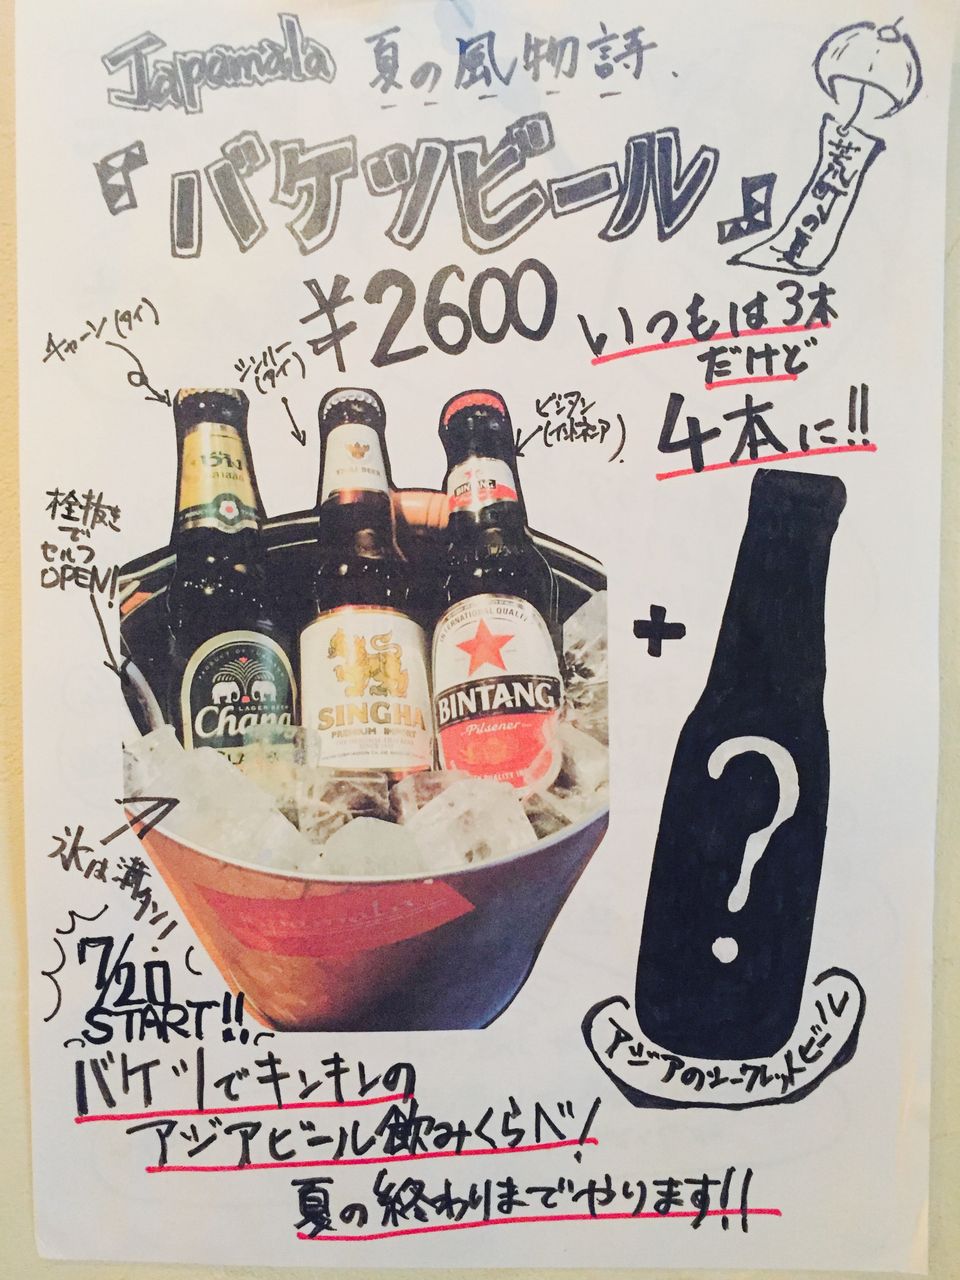 Japamala 夏の風物詩、
『バケツビール』
¥2600
いつもは3本
だけど
4本に!!
チャーン(タイ)
シンハー
(タイ)
ビンタン
(インドネシア)
栓抜き
で
セルフ
OPEN!
BINTANG
INTERNATIONAL QUALITY
Chang
LAGER BEER
SINGHA
PREMIUM IMPORT
BINTANG
Pilsener
+
?
氷は満タン!!
7/20
START!!
アジアのシークレットビール
バケツでキンキンの
アジアビール飲みくらべ!
夏の終わりまでやります!!